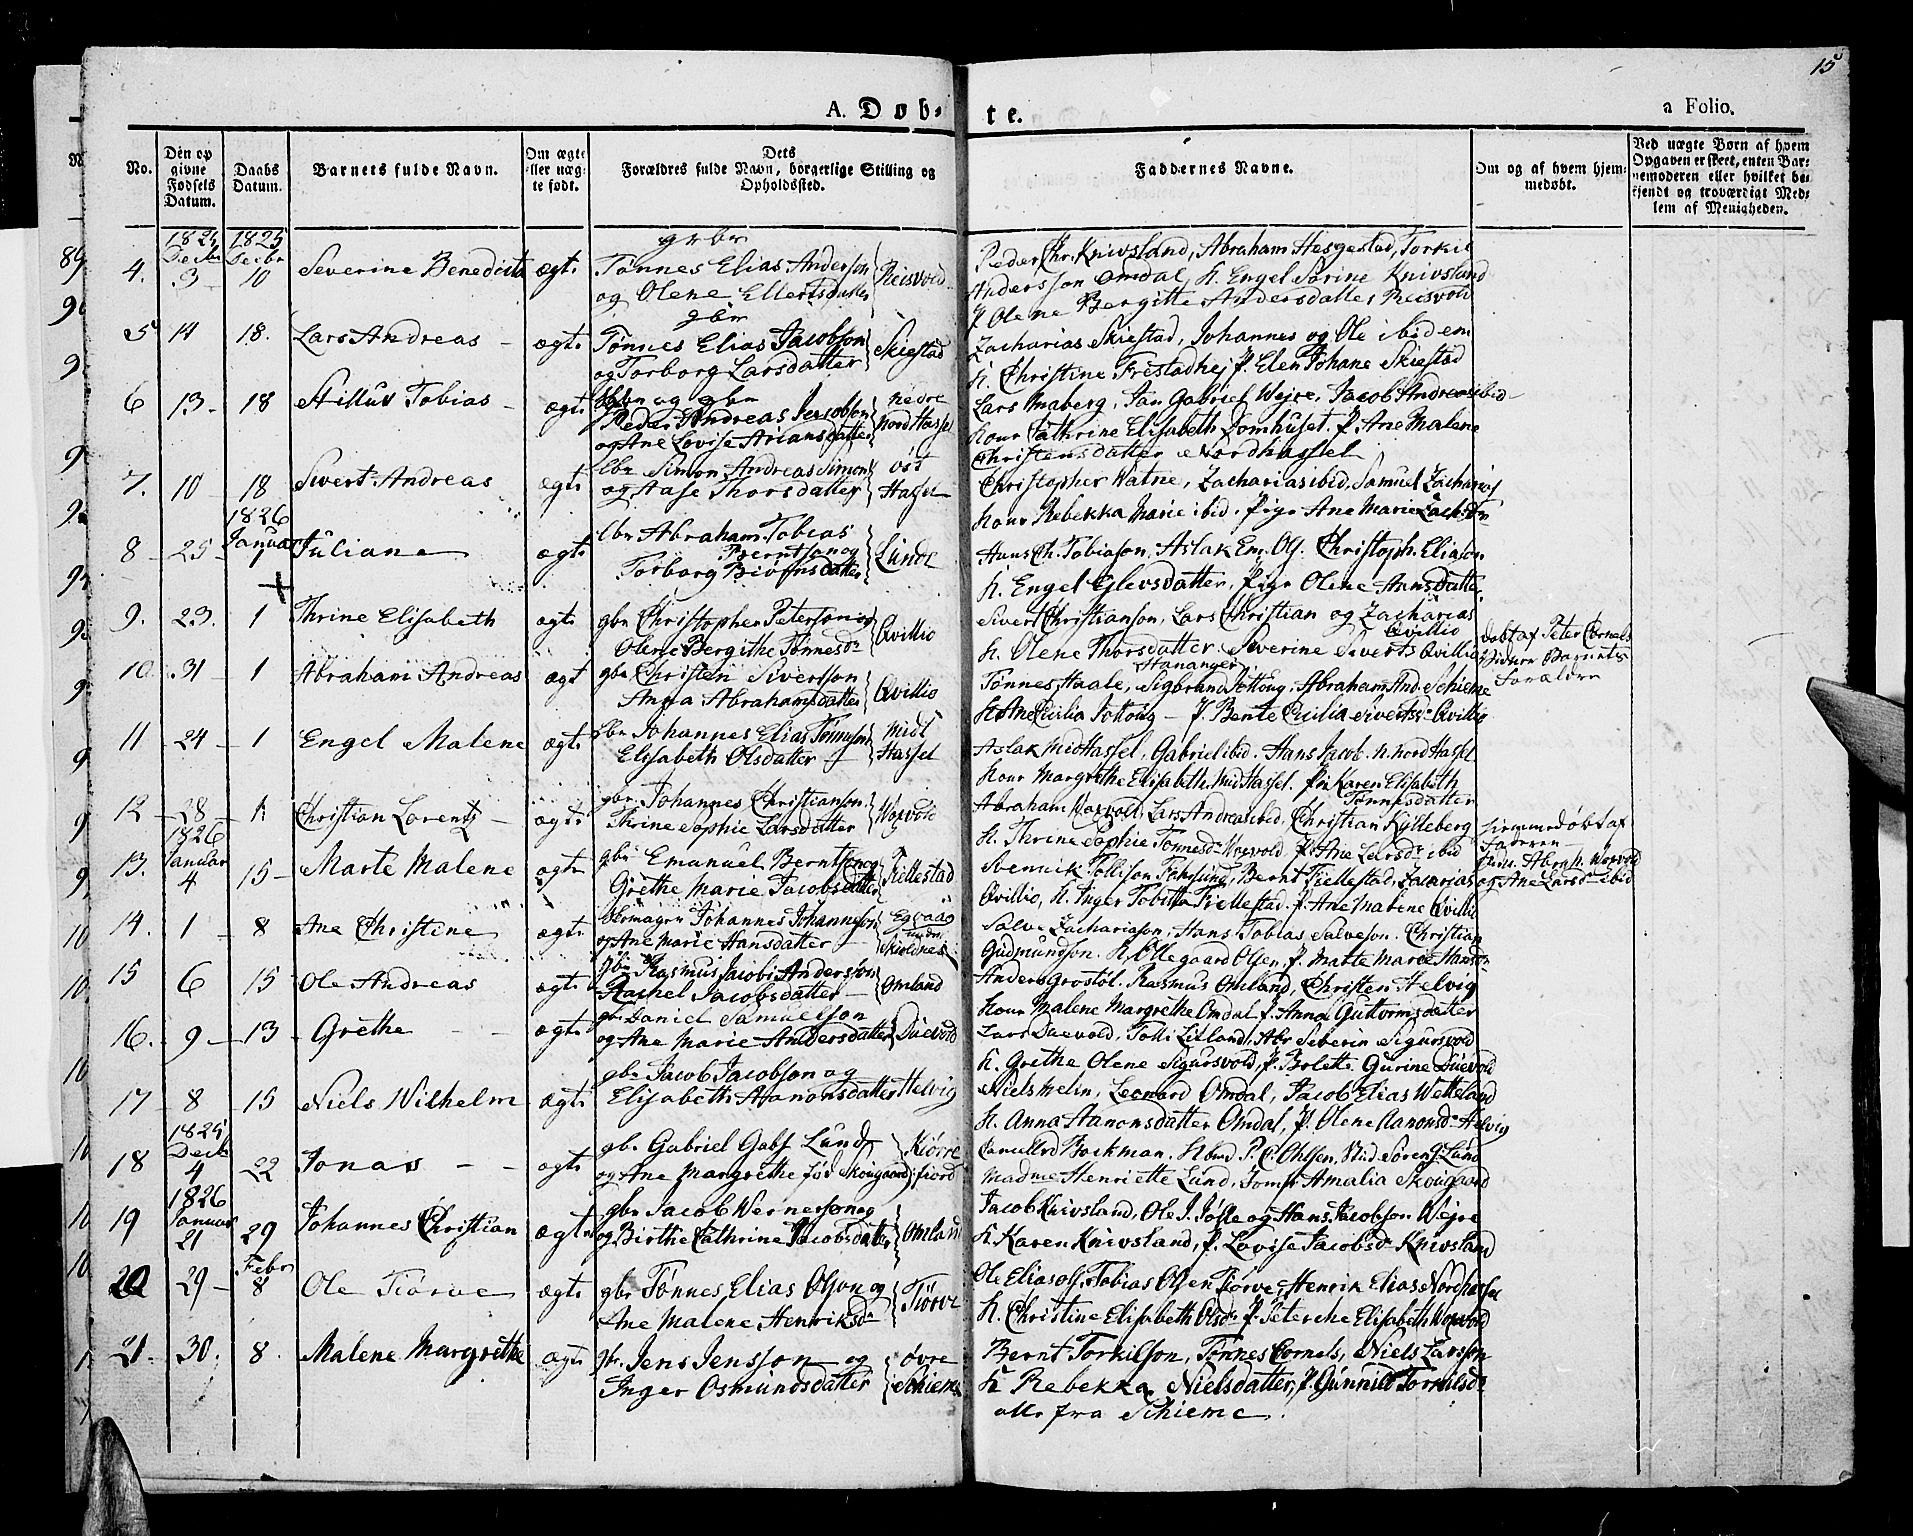 15
A. Døb-
te.
a Folio.
No.
Den op
givne
Fødsels
Datum.
Daabs
Datum.
Barnets fulde Navn.
Om ægte
eller uæg-
te født.
Dets
Forældres fulde Navn, borgerlige Stilling og
Opholdssted.
Faddernes Navne.
Om og af hvem hjem-
medøbt.
Ved uægte Børn af hvem
Opgaven er skeet, enten Bar-
nemoderen eller hvilket be-
kjendt og troværdigt Med-
lem af Menigheden.
1825 1825
Decbr Decbr
4. 3 10 Severine Benedicta ægte gbr
Tønnes Elias Anderson
og Olene Ellertsdatter Reisvold
Peder Chr. Knivsland, Abraham Hesgestad, Torkil
Andersson Omdal, K. Engel Sørine Knivsland
P. Olene Bergitte Andersdatter Reisvold
5 14 18. Lars Andreas - ægte gbr
Tønnes Elias Jacobson
og Torborg Larsdatter Skiestad
Zacharias Skiestad, Johannes og Ole ibidem
K. Christine Frestadhej P. Elen Johane Skiestad
6 13 - 18 Tobias - ægte og gbr
Peder Andreas Jacobson
og Ane Lovise Ariansdatter nedre
Nord Hassel
Lars Maberg, Jan Gabriel Wejre, Jacob Andreas ibid
Kone Cathrine Elisabeth Lomhuset. P. Ane Malene
Christensdatter Nordhassel
7. 10 18 Sivert Andreas ægte
lbr Simon Andreas Simons
og Aase Thorsdatter øst
Hassel
Christopher Watne, Zacharias ibid, Samuel Zacharias
Kone Rebekka Marie ibid. Pige Ane Marie Zach.dr
1826
Januar
8 - 25 - 1 Juliane ægte
lbr Abraham Tobias
Berntson og
Torborg Biørnsdatter Lunde
Hans Ch. Tobiason, Aslak Em. Ols. Christoph. Eliason
K. Engel Eglevsdatter, Pige Olene Aansdatter
9. 23. 1 Thrine Elisabeth ægte
gbr Christopher Peterson og
Olene Bergithe Tønnesdr Qvillio
Sivert Christianson, Lars Christian og Zacharias
Qvillio
K. Olene Thorsdatter Severine Siverts Qvillio
døbt af Peter Cornels
Barnets
Forældre
10. 31 - 1 Abraham Andreas ægt
gbr Christen Sivertson
Anna Abrahamsdatter Qvillio
Stananger
Tønnes Haale, Sigbrand Jottoug, Abraham And. Schieme
K. Ane Cecilia Jottoug - P. Bente Cecilia Sivertsdr Qvillio
11 - 24 - 1 Engel Malene ægte
gbr Johannes Elias Tønneson
Elisabeth Olsdatter - Midt
Hassel
Aslak Midhassel, Gabriel ibid. Hans Jacob. n. nord Hassel
Kone Margrethe Elisabeth Midhassel. Pin Karen Elisabeth
Tønnesdatter
12 - 28 - 1. Christian Lorentz - ægte
gbr Johannes Christianson.
Thrine Sophie Larsdatter Woxvold
Abraham Woxvold, Lars Andreas ibid, Christian Kylleberg
K. Thrine Sophie Tønnesdr Woxvold P. Ane Larsdr ibid
hiemmedøbt af
Faderen -
Abrah. Woxvold
og Ane Larsdr ibid
1826
Januar
13. 4 15 - Marte Malene ægte
gbr Emanuel Berntson og
Grethe Marie Jacobsdatter Fiellestad
Svennik Tollison Farsund, Bernt Fiellestad, Zacarias
Qvillio, K. Inger Tobitta Fiellestad. P. Ane Malene Qvillio
14. - 1 - 8 Ane Christene ægte
Johannes Johanneson
og Ane Marie Hansdatter - Egvaag
under
Skioldnes
Salve Zachariason, Hans Tobias Salveson. Christian
Gudmundson. K. Ollegaard Olsen, P. Matte Marie Hansdr
15 6 15 Ole Andreas ægte
gbr Rasmus Jacob Anderson
Rachel Jacobsdatter - Omland
Anders Grostøl. Rasmus Omland, Christen Helvig
Kone Malene Margrethe Omdal P. Anna Guttormsdatter
16. - 9 - 13 - Grethe - - ægte
gbr Daniel Samuelson
og Ane Marie Andersdatter Duevold
Lars Duevold, Tolli Litland, Abr Seberin Sigursvold
K. Grethe Olene Sigursvold, P. Bolette Gurine Duevold
17 - 8 - 15 - Niels Wilhelm ægte
gbr Jacob Jacobson og
Elisabeth Aanonsdatter Helvig
Niels Melin, Leonard Omdal, Jacob Elias Wetteland
K. Anna Aanonsdatter Omdal, P. Olene Aanonsdr Helvig
1825
Decb
18 4 22 Jonas - - ægte
gbr Gabriel Gabs. Lund
og Ane Margrethe fød Skougaard Kiørre
fiord
Bockman. P. C. Ohlsen, Stud. Søren G. Lund
Madme Henriette Lund, Jomfr Amalia Skougaard
1826
Januar
19 21 29 Johannes Christian ægte
gbr Jacob Wernerson og
og Birthe Cathrine Jacobsdatter Omland
Jacob Knivsland, Ole J. Jølle og Hans Jacobson Wejre
K. Karen Knivsland, P. Lovise Jacobsdr Knivsland
Febr
20 29 - 8 Ole Tiørve ægte
gbr Tønnes Elias Olson og
Ane Malene Henriksdr Tiørve
Ole Elias Ols. Tobias Olsen Tiørve, Henrik Elias Nordhassel
K. Christine Elisabeth Olsdr P. Peterche Elisabeth Woxvold
21. 30. 8. Malene Margrethe ægte
gbr. Jens Jensson og
Inger Osmundsdatter øvre
Schieme
Bernt Torkilson, Tønnes Cornels, Niels Larsson
K. Rebekka Nielsdatter, P. Gunnild Torkilsdr
alle fra Schieme.